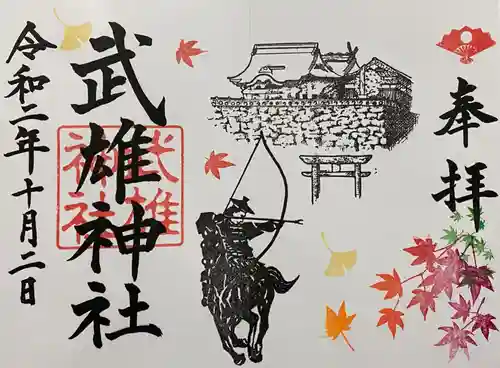 奉拝
武雄神社
武雄神社
令和二年十月二日